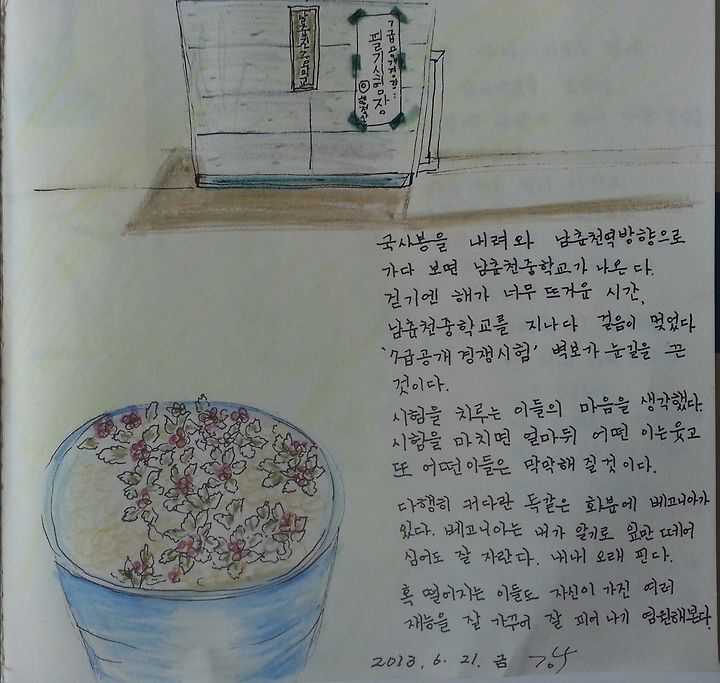 남춘천중학교
7급공개경쟁
필기시험장
국사봉을 내려와 남춘천역방향으로
가다 보면 남춘천중학교가 나온다.
걷기엔 해가 너무 뜨거운 시간,
남춘천중학교를 지나다 걸음이 멎었다
'7급공개경쟁시험' 벽보가 눈길을 끈
것이다.
시험을 치루는 이들의 마음을 생각했다.
시험을 마치면 얼마뒤 어떤 이는 웃고
또 어떤이들은 막막해 질 것이다.
다행히 커다란 독같은 화분에 베고니아가
있다. 베고니아는 내가 알기로 잎만 떼어
심어도 잘 자란다. 내내 오래 핀다.
혹 떨어지는 이들도 자신이 가진 여러
재능을 잘 가꾸어 잘 피어 나기 염원해본다.
2013. 6. 21. 금